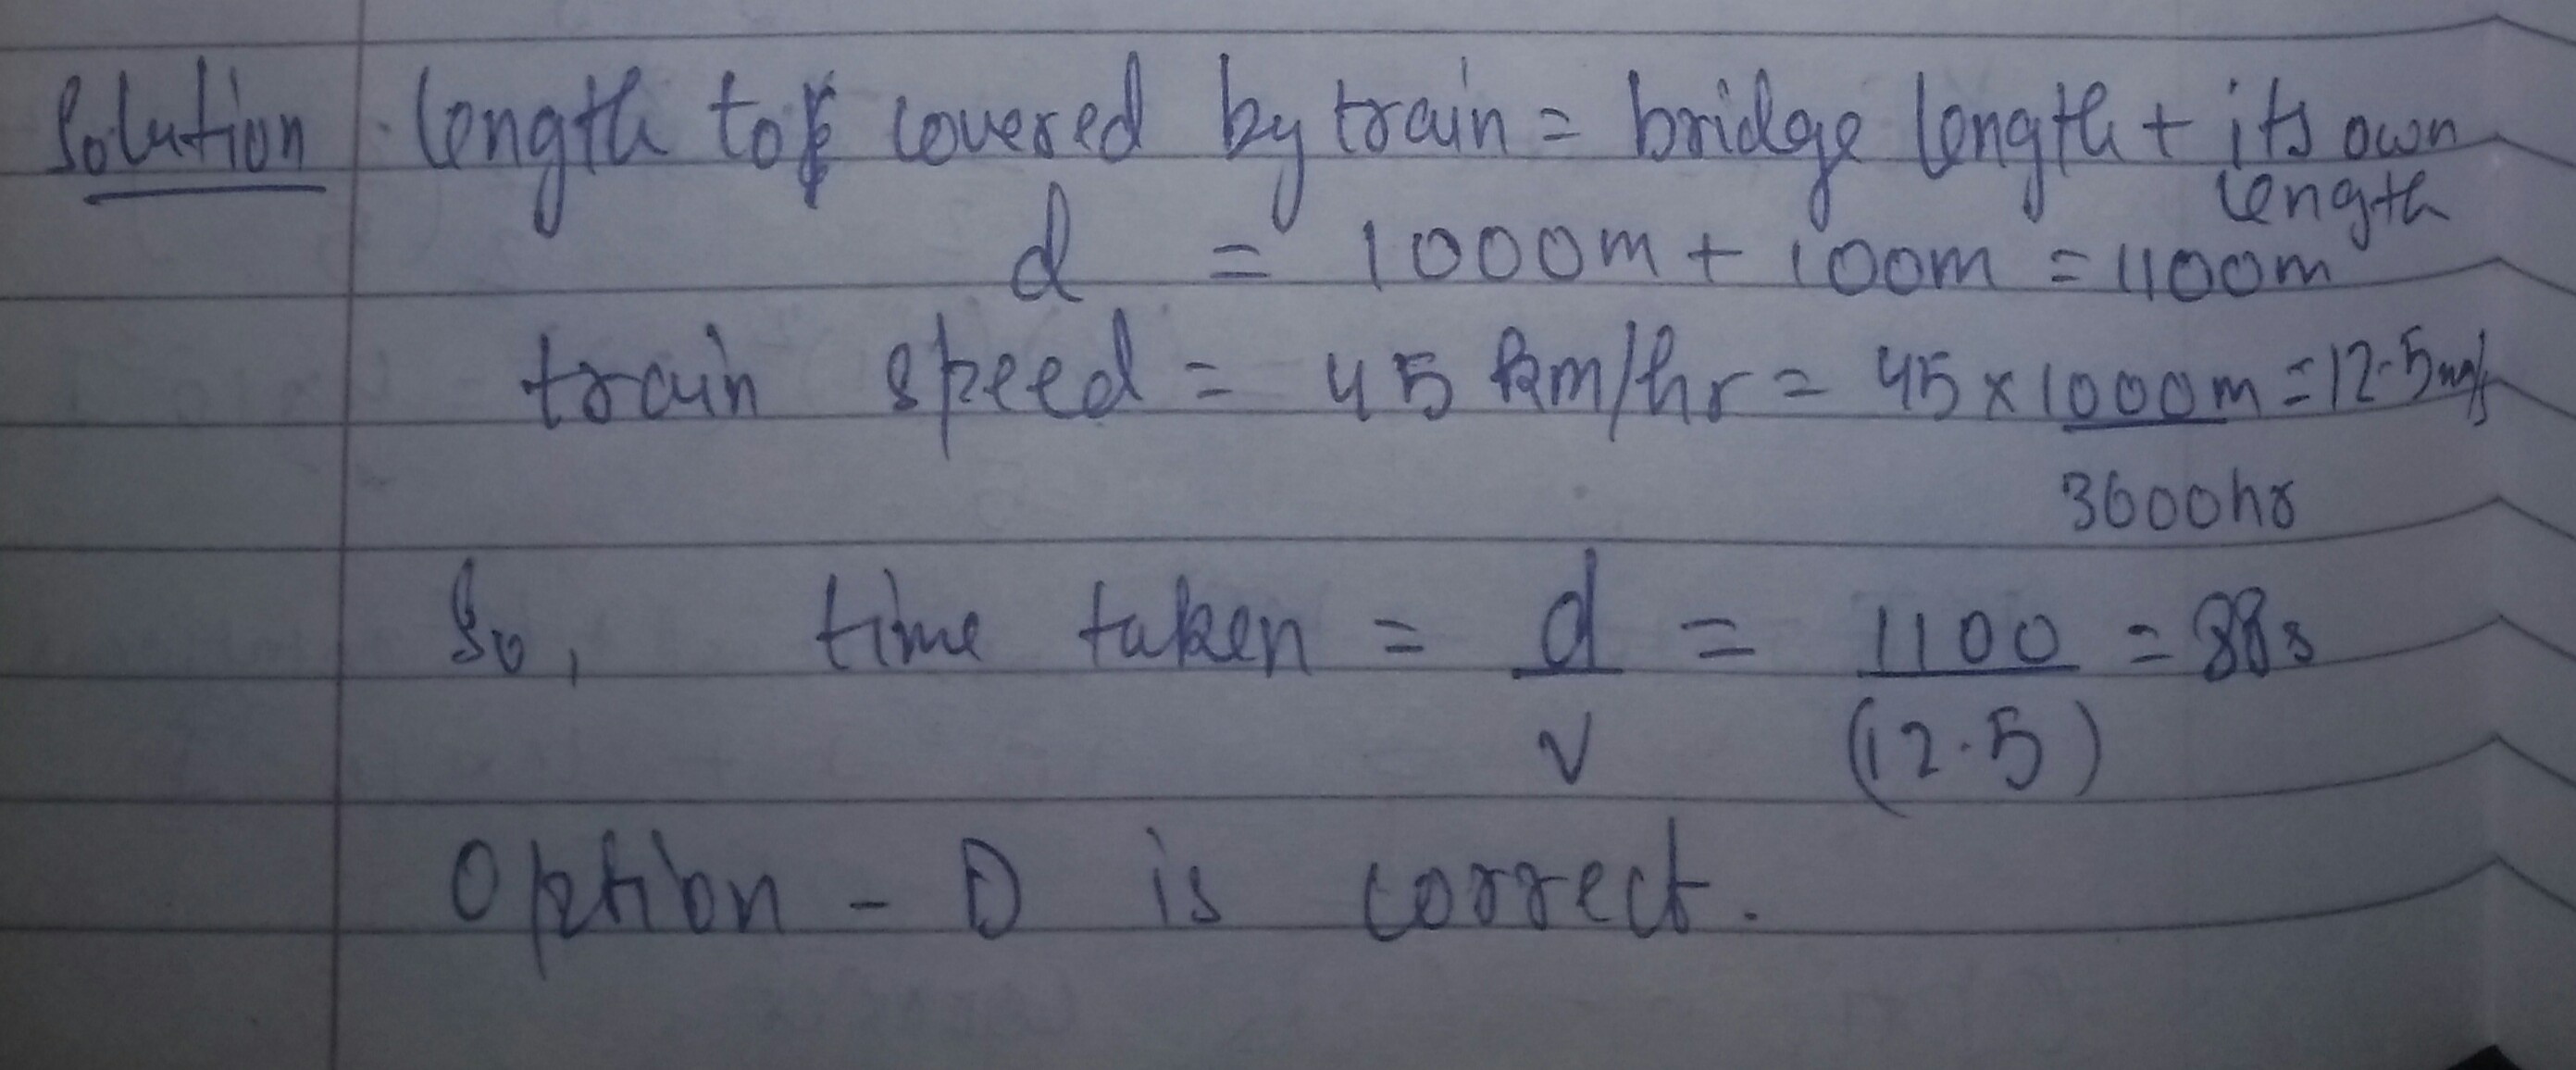 Solution length to covered by train = bridge length + its own
length
d = 1000m + 100m = 1100m
train speed = 45 km/hr = 45 × 1000m = 12.5m/s
3600hr
So, time taken = d = 1100 = 88s
v (12.5)
Option - D is correct.